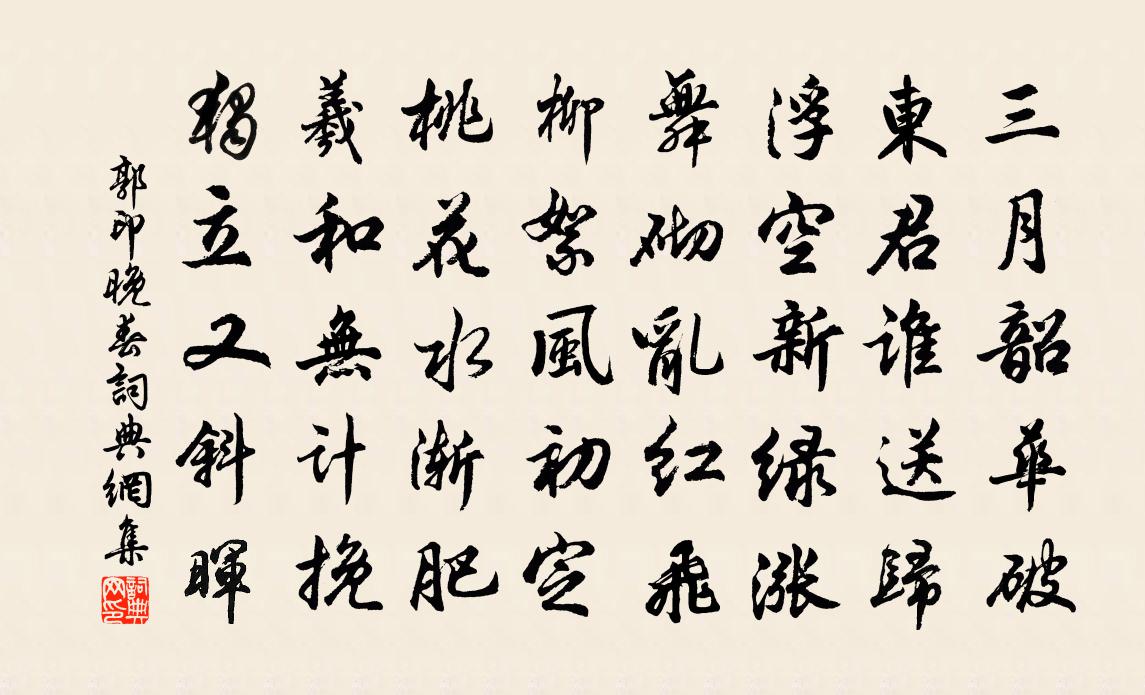 三月韶華破
東君誰送歸
浮空新綠漲
舞砌亂紅飛
柳絮風初定
桃花水漸肥
羲和無計挽
獨立又斜暉
郭印晚春詞典網集
詞典網印